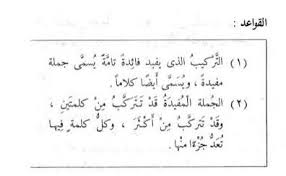 القواعد :
(١) التَّركيبُ الذى يفيد فائدةً تامَّةً يُسمَّى جملة
مفيدةً ، ويُسَمَّى أَيضًا كلاماً .
(٢) الجُملة المُفيدَةُ قَدْ تَتَركَّبُ مِنْ كلمتَينِ ،
وقَدْ تتَركَّبُ مِنْ أَكْثَرَ ، وكلُّ كلمةٍ فيها
تُعَدُّ جُزْءًا منْها .